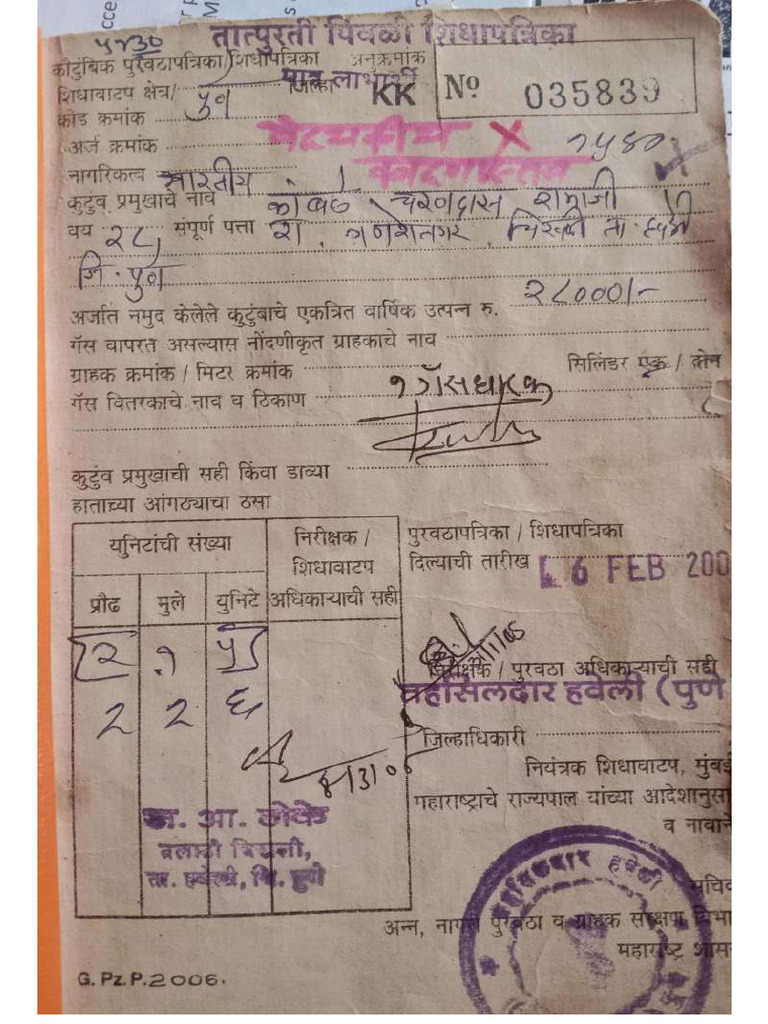 ५४३०
तात्पुरती पिवळी शिधापत्रिका
कौटुंबिक पुरवठापत्रिका/शिधापत्रिका अनुक्रमांक
पात्र लाभार्थी
शिधावाटप क्षेत्र/ पुणे जिल्हा KK Nº 035839
कोड क्रमांक
अर्ज क्रमांक
नागरिकत्व भारतीय
कुटुंब प्रमुखाचे नाव कांबळे चरणदास रामाजी
वय २८ संपूर्ण पत्ता रा. गणेशनगर, चिखली ता. हवेली
जि. पुणे
अर्जात नमुद केलेले कुटुंबाचे एकत्रित वार्षिक उत्पन्न रु. २८०००/-
गॅस वापरत असल्यास नोंदणीकृत ग्राहकाचे नाव
ग्राहक क्रमांक / मिटर क्रमांक सिलिंडर एक / दोन
१ गॅसधारक
गॅस वितरकाचे नाव व ठिकाण
कुटुंब प्रमुखाची सही किंवा डाव्या
हाताच्या आंगठ्याचा ठसा
युनिटांची संख्या निरीक्षक / शिधावाटप अधिकाऱ्याची सही
प्रौढ मुले युनिटे
२ १ ५
२ २ ६
पुरवठापत्रिका / शिधापत्रिका
दिल्याची तारीख 6 FEB 200
निरीक्षक / पुरवठा अधिकाऱ्याची सही
तहसिलदार हवेली (पुणे
जिल्हाधिकारी
नियंत्रक शिधावाटप, मुंबई
महाराष्ट्राचे राज्यपाल यांच्या आदेशानुसा
व नावाने
तहसिलदार हवेली
सचिव
अन्न, नागरी पुरवठा व ग्राहक संरक्षण विभा
महाराष्ट्र शास
ता. हवेली, जि. पुणे
G. Pz. P. 2006.